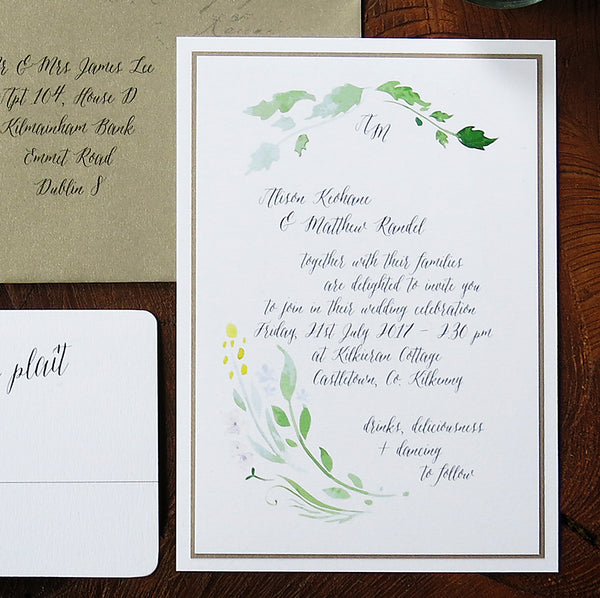 & Mrs James Lee
Apt 104, House D
Kilmainham Bank
Emmet Road
Dublin 8
AM
Alison Keohane
& Matthew Randel
together with their families
are delighted to invite you
to join in their wedding celebration
Friday, 21st July 2017 – 2.30 pm
at Kilkieran Cottage
Castletown, Co. Kilkenny
drinks, deliciousness
+ dancing
to follow
plaît